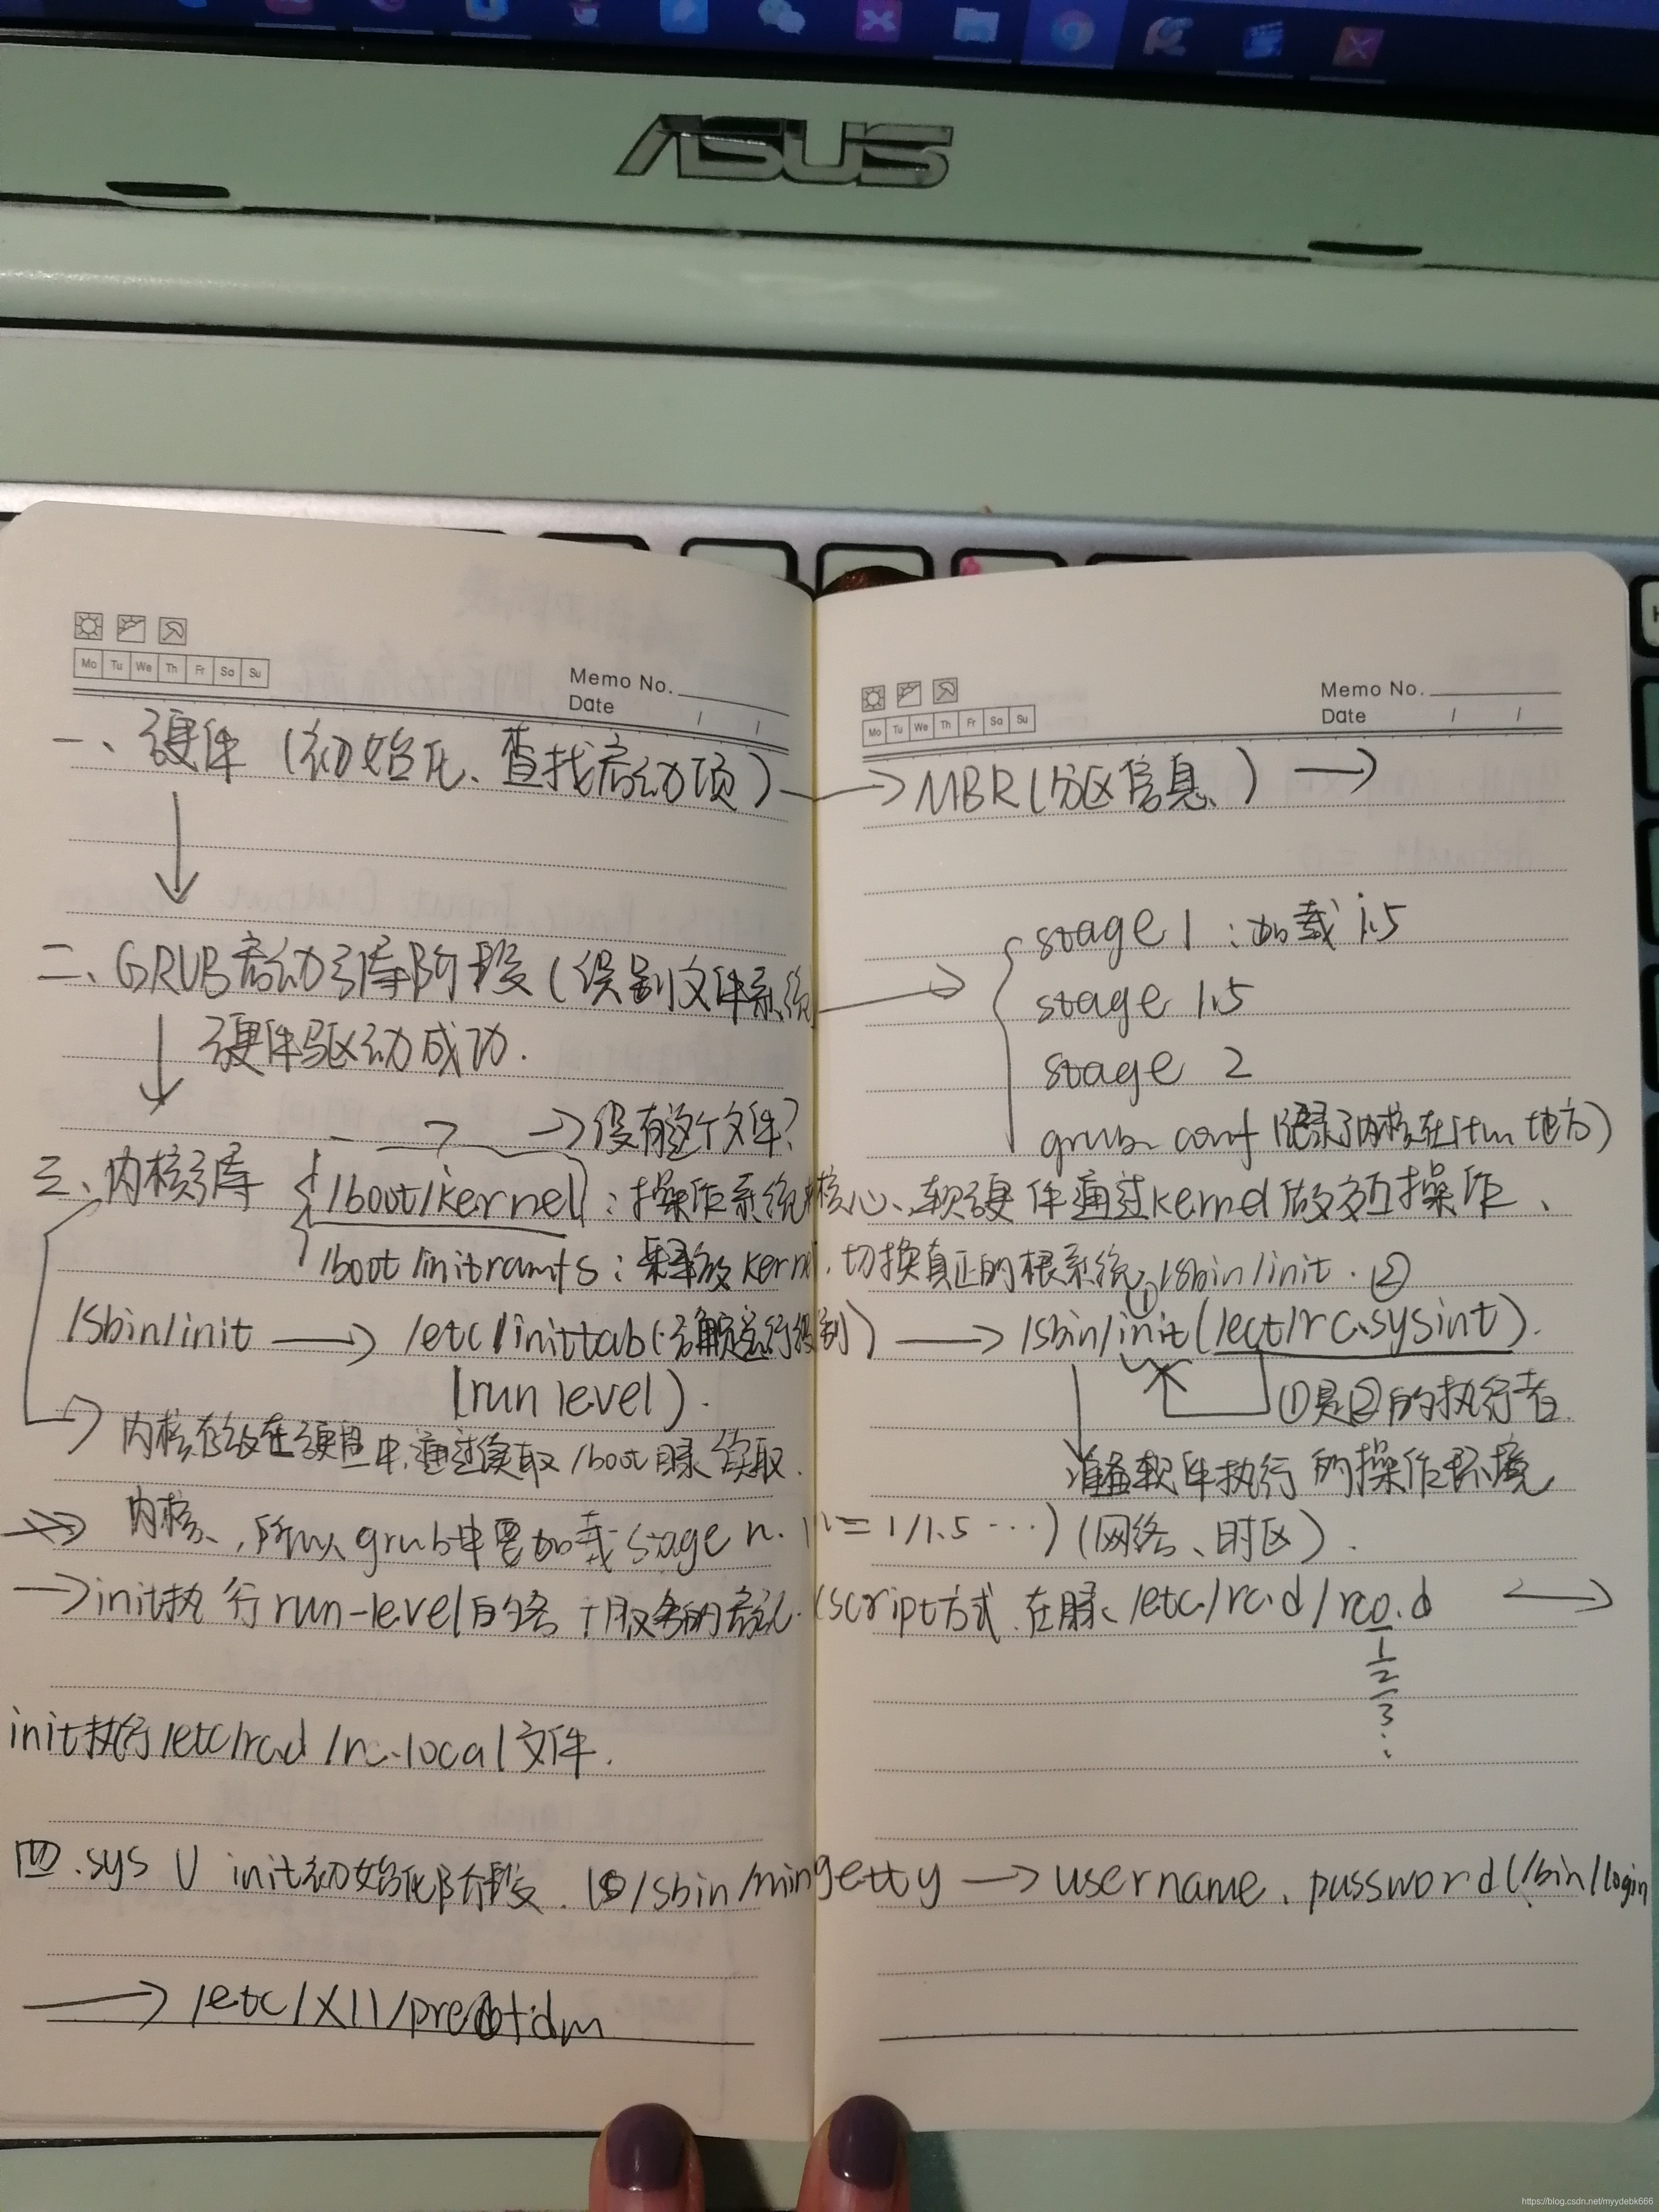 ASUS
Mo Tu We Th Fr Sa Su
Memo No.
Date / /
Mo Tu We Th Fr Sa Su
Memo No.
Date / /
一、硬件(初始化、查找启动项) → MBR(分区信息) →
↓
二、GRUB启动引库阶段(识别文件系统 →
硬件驱动成功.
stage 1 : 加载 1.5
stage 1.5
stage 2
grub conf (记录了内核在什么地方)
→ 没有这个文件?
三、内核引库 /boot/kernel : 操作系统核心、软硬件通过kernel做交互操作、
/boot/initramfs : 释放kernel. 切换真正的根系统, /sbin/init. ②
/sbin/init → /etc/inittab(运行级别) → /sbin/init①(/ect/rc.sysint).
(run level).
①是②的执行者
→ 内核存放在硬盘中,通过读取/boot目录读取.
准备软件执行的操作环境
内核,所以grub中要加载stage n. n=1/1.5 …) (网络、时区).
→init执行run-level的各个服务的启动.(script方式.在目录/etc/rc.d/rc0.d →
1
2
3
⋮
init执行/etc/rc.d/rc.local文件.
四.sys V init初始化阶段. /sbin/mingetty → username、password(/bin/login
→ /etc/X11/prefdm
https://blog.csdn.net/myydebk666